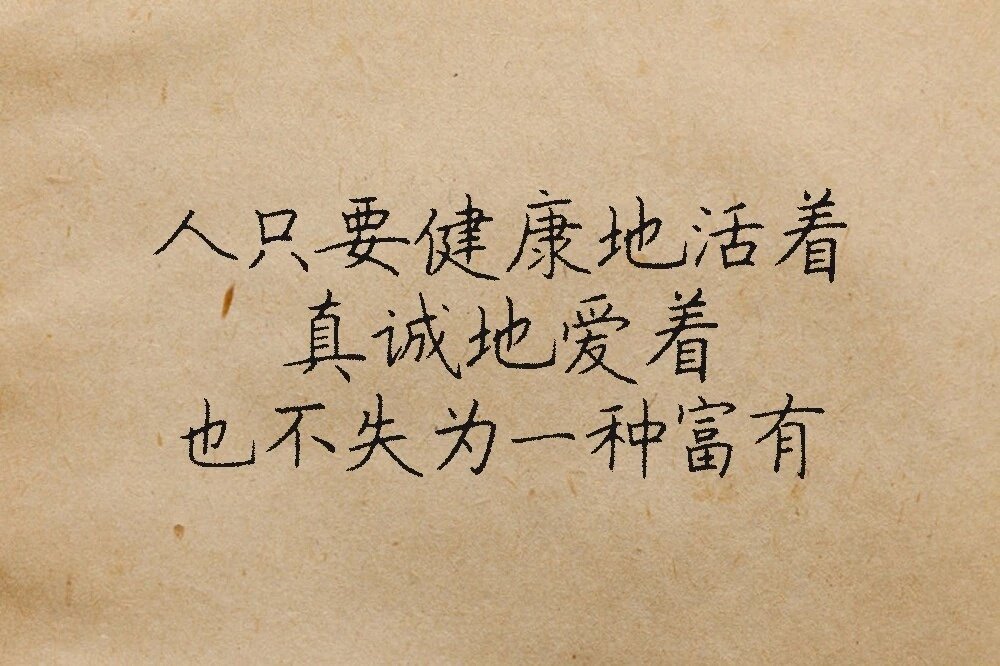 人只要健康地活着
真诚地爱着
也不失为一种富有